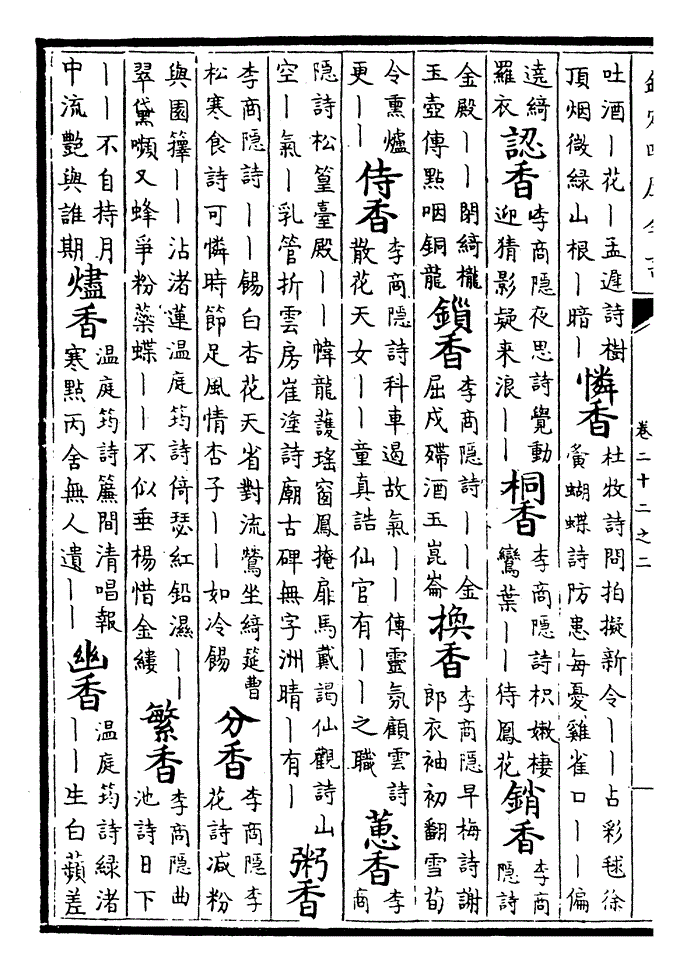 欽定四庫全書
卷二十二之二
吐酒丨花丨孟遲詩樹
頂烟微綠山根丨暗丨
憐香
杜牧詩問拍擬新令丨丨占彩毬徐
夤蝴蝶詩防患每憂雞雀口丨丨偏
遶綺
羅衣
認香
李商隱夜思詩覺動
迎猜影疑来浪丨丨
桐香
李商隱詩枳嫩棲
鸞葉丨丨待鳳花
銷香
李商
隱詩
金殿丨丨閉綺櫳
玉壺傳點咽銅龍
鎖香
李商隱詩丨丨金
屈戍殢酒玉崑崙
換香
李商隱早梅詩謝
郎衣袖初翻雪荀
令熏爐
更丨丨
侍香
李商隱詩科車遏故氣丨丨傳靈氛顧雲詩
散花天女丨丨童真誥仙官有丨丨之職
蕙香
李
商
隱詩松篁臺殿丨丨幃龍護瑤窗鳳掩扉馬戴謁仙觀詩山
空丨氣丨乳管折雲房崔塗詩廟古碑無字洲晴丨有丨
粥香
李商隱詩丨丨餳白杏花天省對流鶯坐綺筵曹
松寒食詩可憐時節足風情杏子丨丨如冷餳
分香
李商隱李
花詩减粉
與園籜丨丨沾渚蓮温庭筠詩倚瑟紅鉛濕丨丨
翠黛嚬又蜂爭粉蘂蝶丨丨不似垂楊惜金縷
繁香
李商隱曲
池詩日下
丨丨不自持月
中流艷與誰期
燼香
温庭筠詩簾間清唱報
寒點丙舍無人遺丨丨
幽香
温庭筠詩綠渚
丨丨生白蘋差